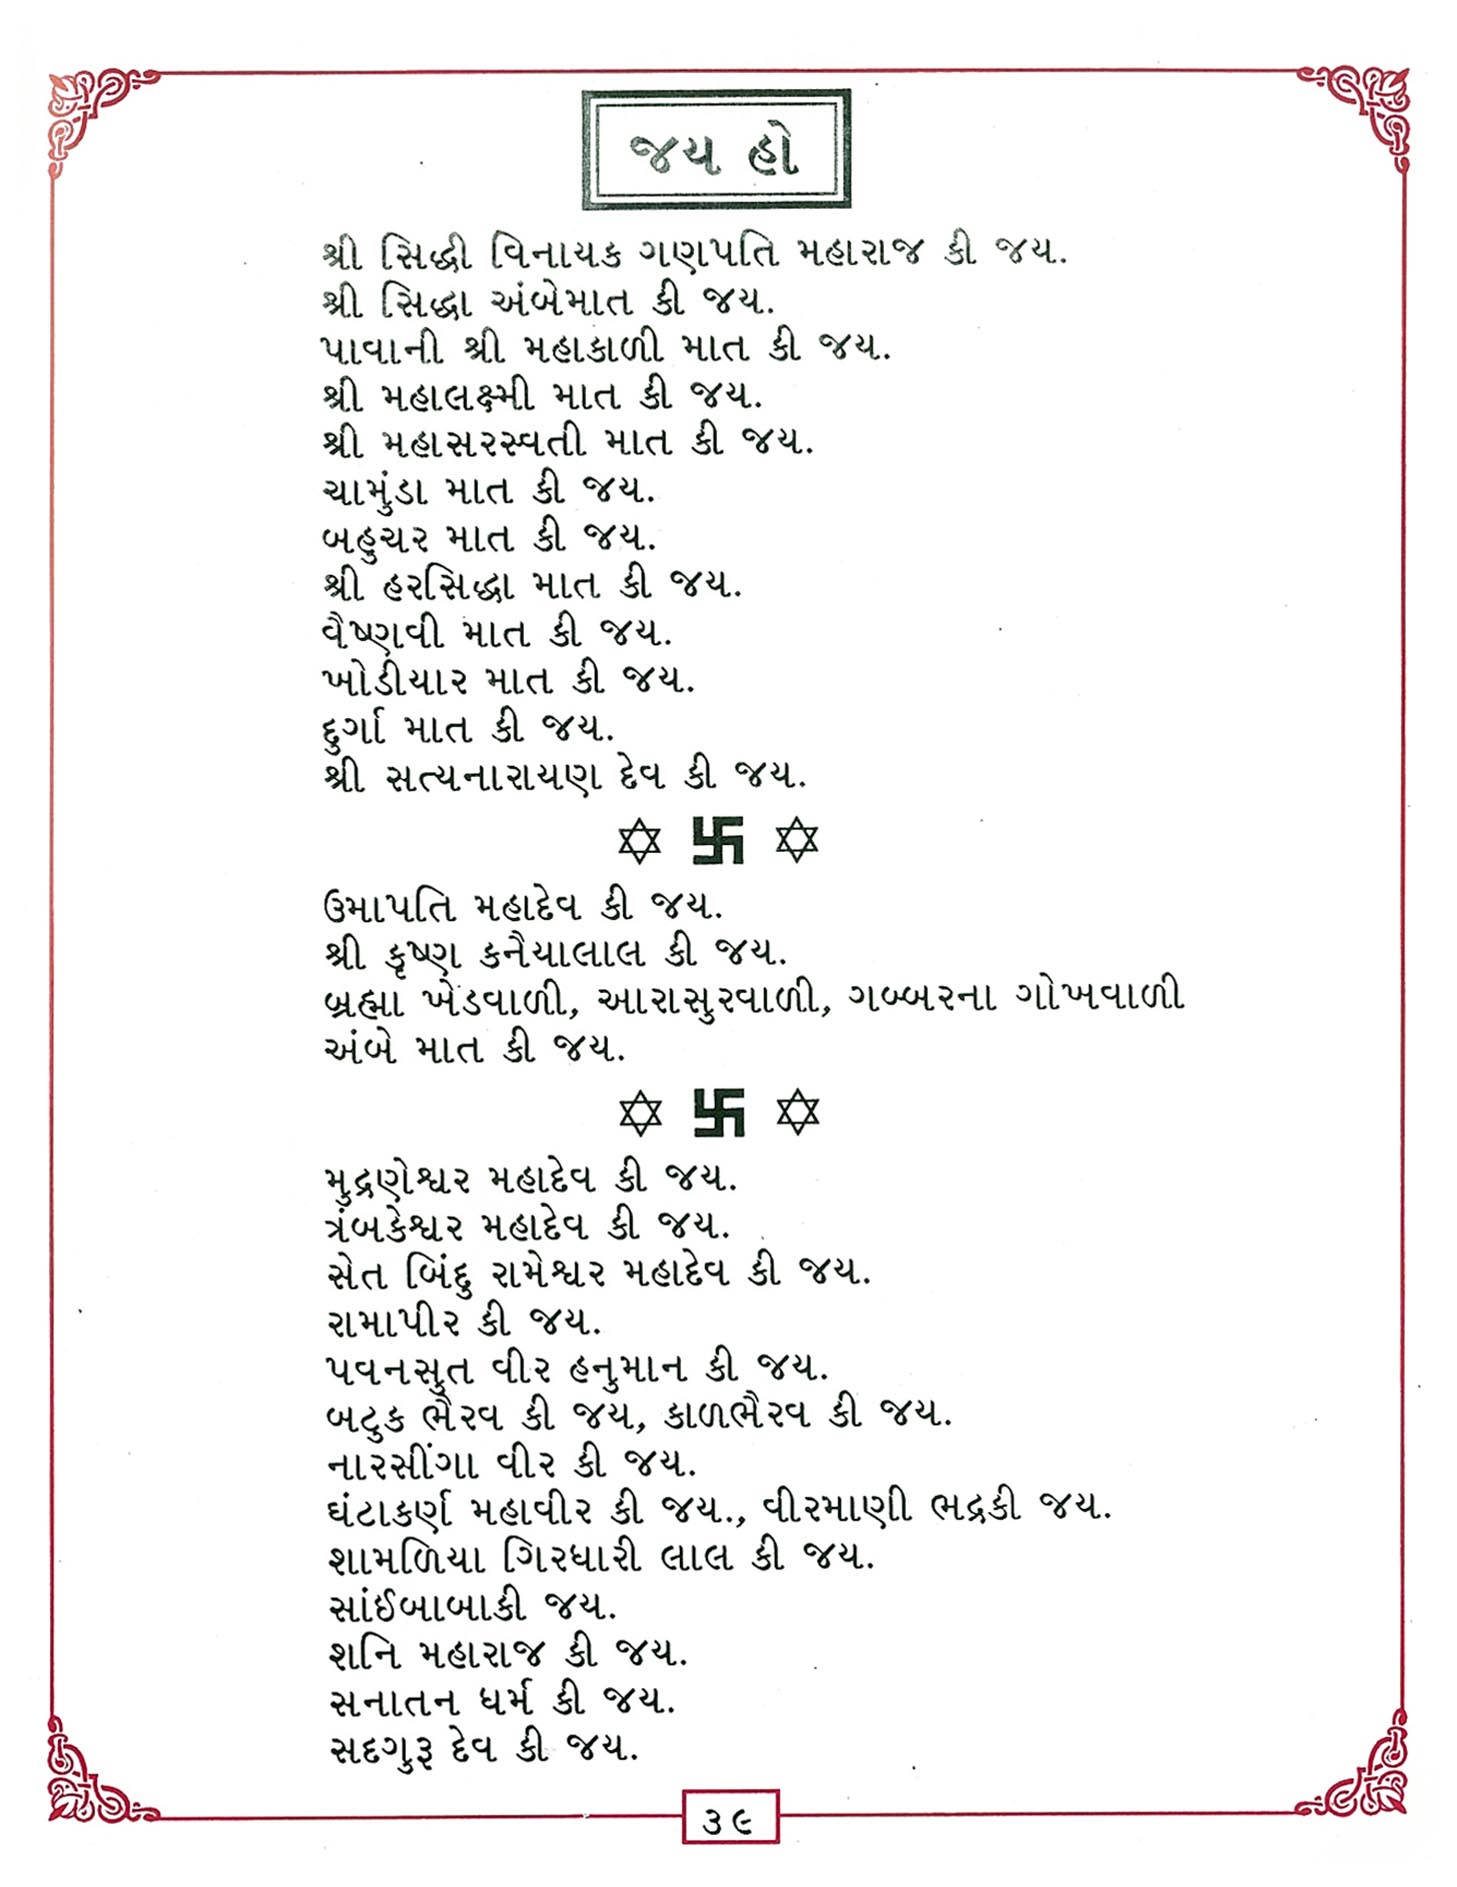 જય હો
શ્રી સિદ્ધી વિનાયક ગણપતિ મહારાજ કી જય.
શ્રી સિદ્ધા અંબેમાત કી જય.
પાવાની શ્રી મહાકાળી માત કી જય.
શ્રી મહાલક્ષ્મી માત કી જય.
શ્રી મહાસરસ્વતી માત કી જય.
ચામુંડા માત કી જય.
બહુચર માત કી જય.
શ્રી હરસિદ્ધા માત કી જય.
વૈષ્ણવી માત કી જય.
ખોડીયાર માત કી જય.
દુર્ગા માત કી જય.
શ્રી સત્યનારાયણ દેવ કી જય.
✡ 卐 ✡
ઉમાપતિ મહાદેવ કી જય.
શ્રી કૃષ્ણ કનૈયાલાલ કી જય.
બ્રહ્મા ખેડવાળી, આરાસુરવાળી, ગબ્બરના ગોખવાળી
અંબે માત કી જય.
✡ 卐 ✡
મુદ્રણેશ્વર મહાદેવ કી જય.
ત્રંબકેશ્વર મહાદેવ કી જય.
સેત બિંદુ રામેશ્વર મહાદેવ કી જય.
રામાપીર કી જય.
પવનસુત વીર હનુમાન કી જય.
બટુક ભૈરવ કી જય, કાળભૈરવ કી જય.
નારસીંગા વીર કી જય.
ઘંટાકર્ણ મહાવીર કી જય., વીરમાણી ભદ્રકી જય.
શામળિયા ગિરધારી લાલ કી જય.
સાંઈબાબાકી જય.
શનિ મહારાજ કી જય.
સનાતન ધર્મ કી જય.
સદગુરૂ દેવ કી જય.
૩૯